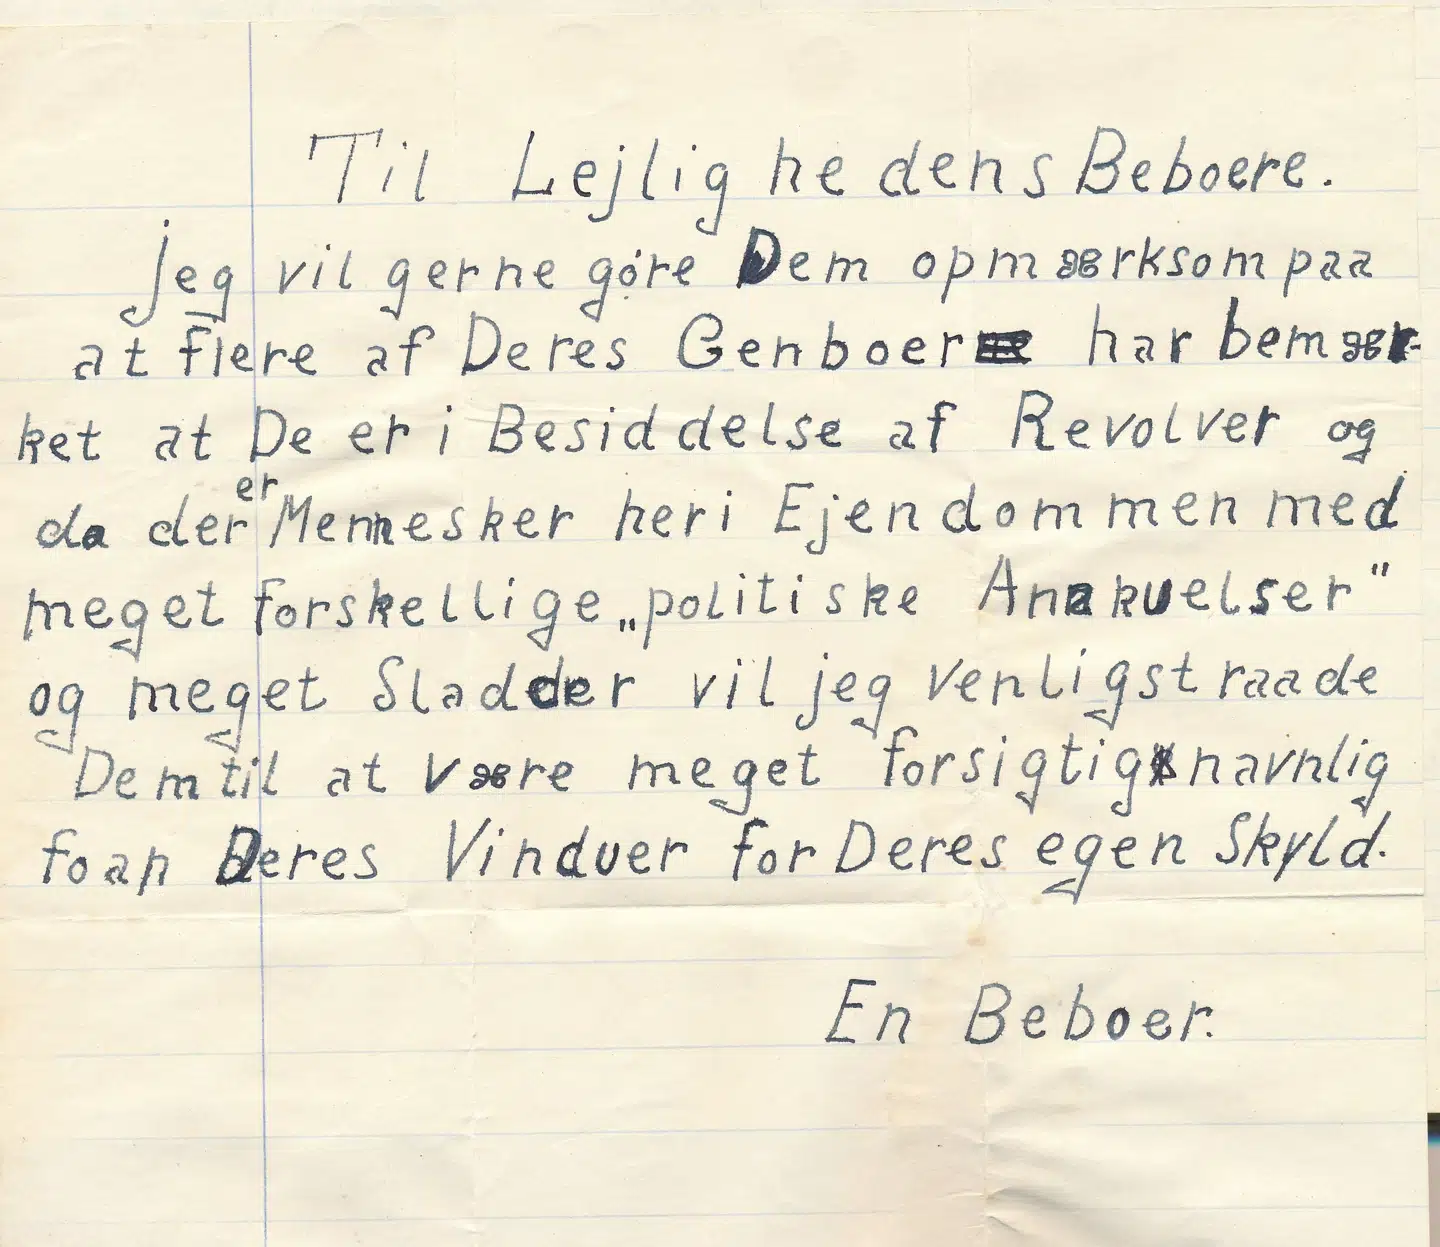 Til Lejlighedens Beboere.
jeg vil gerne gøre Dem opmærksom paa
at flere af Deres Genboer har bemær-
ket at De er i Besiddelse af Revolver og
da der er Mennesker her i Ejendommen med
meget forskellige „politiske Anskuelser"
og meget Sladder vil jeg venligst raade
Dem til at være meget forsigtig navnlig
foan Deres Vinduer for Deres egen Skyld.
En Beboer.